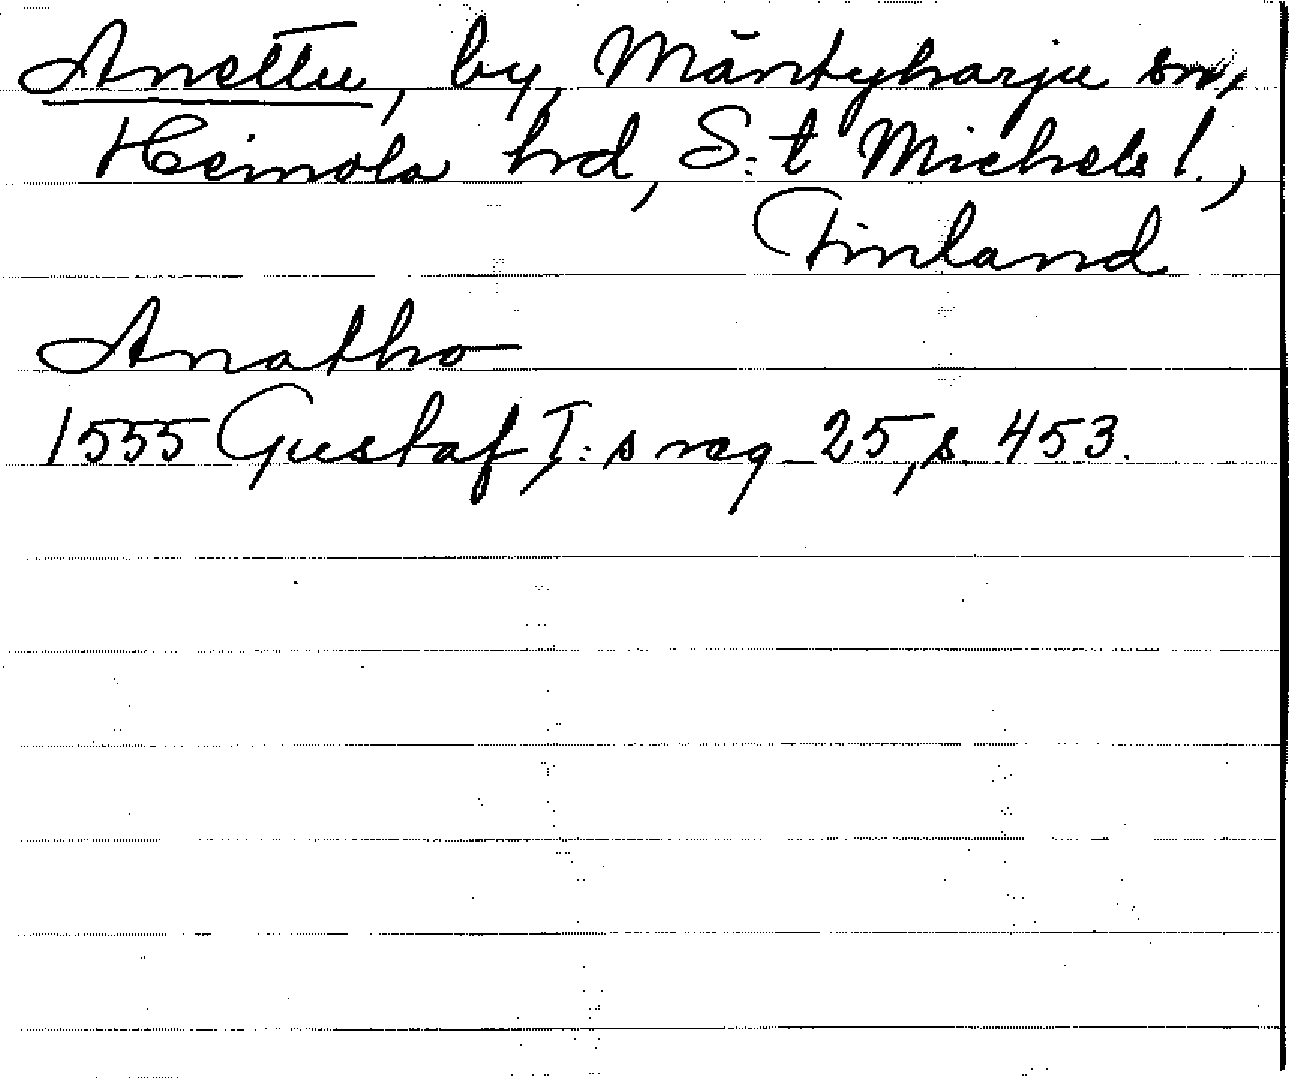 Anettu, by, Mäntyharju sn,
Heinola hd, S:t Michels l.,
Finland
Anatho
1555 Gustaf I:s reg 25, s. 453.